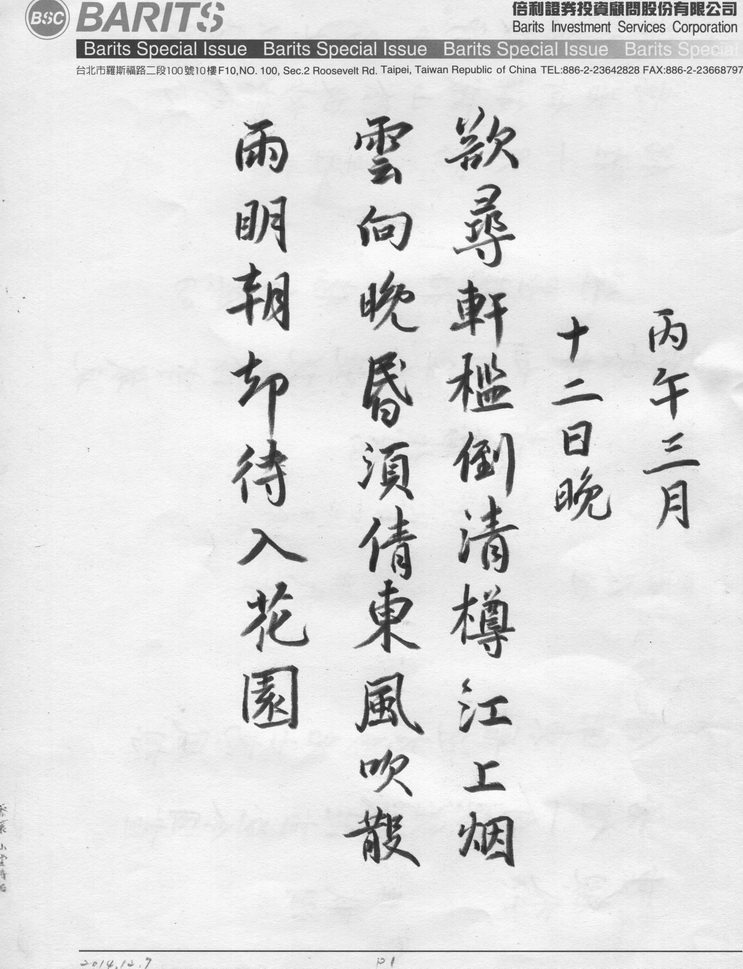 BSC BARITS
倍利證券投資顧問股份有限公司
Barits Investment Services Corporation
Barits Special Issue Barits Special Issue Barits Special Issue Barits Special
台北市羅斯福路二段100號10樓F10,NO. 100, Sec.2 Roosevelt Rd. Taipei, Taiwan Republic of China TEL:886-2-23642828 FAX:886-2-23668797
丙午三月
十二日晚
欲尋軒檻倒清樽江上烟
雲向晚昏須倩東風吹散
雨明朝却待入花園
2014.12.7
P1